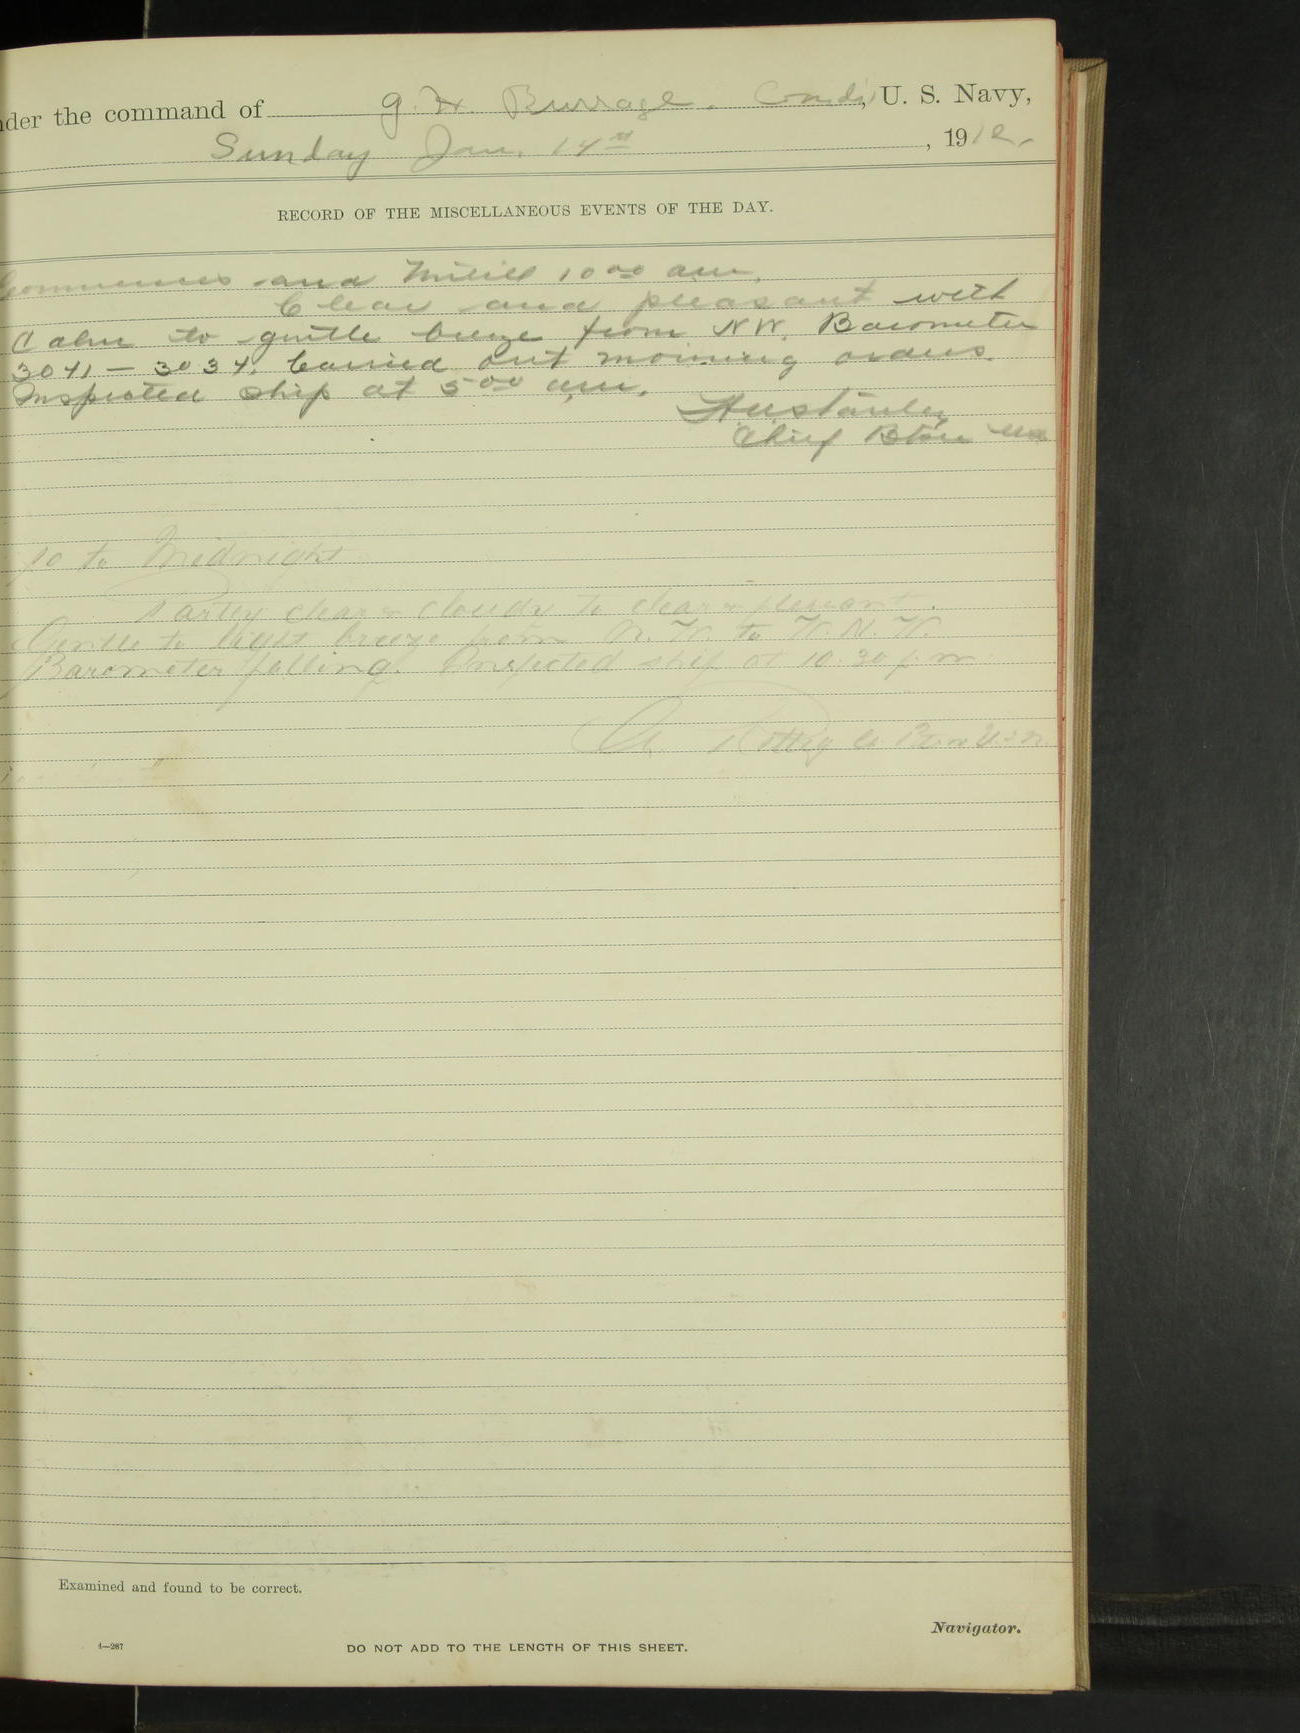 nder the command of G. W. Burrage. Comdr, U. S. Navy,
Sunday Jan. 14th, 1912.
RECORD OF THE MISCELLANEOUS EVENTS OF THE DAY.
Commences and until 10 00 am.
Clear and pleasant with
Calm to gentle breeze from NW. Barometer
3041 — 3034. Carried out morning orders.
Inspected ship at 5 00 am.
Chief Btsn
10 to Midnight
Partly clear & cloudy to clear & pleasant.
Gentle to light breeze from N. W. to W. N. W
Barometer falling. Inspected ship at 10.30 p.m.
Examined and found to be correct.
Navigator.
4—287
DO NOT ADD TO THE LENGTH OF THIS SHEET.